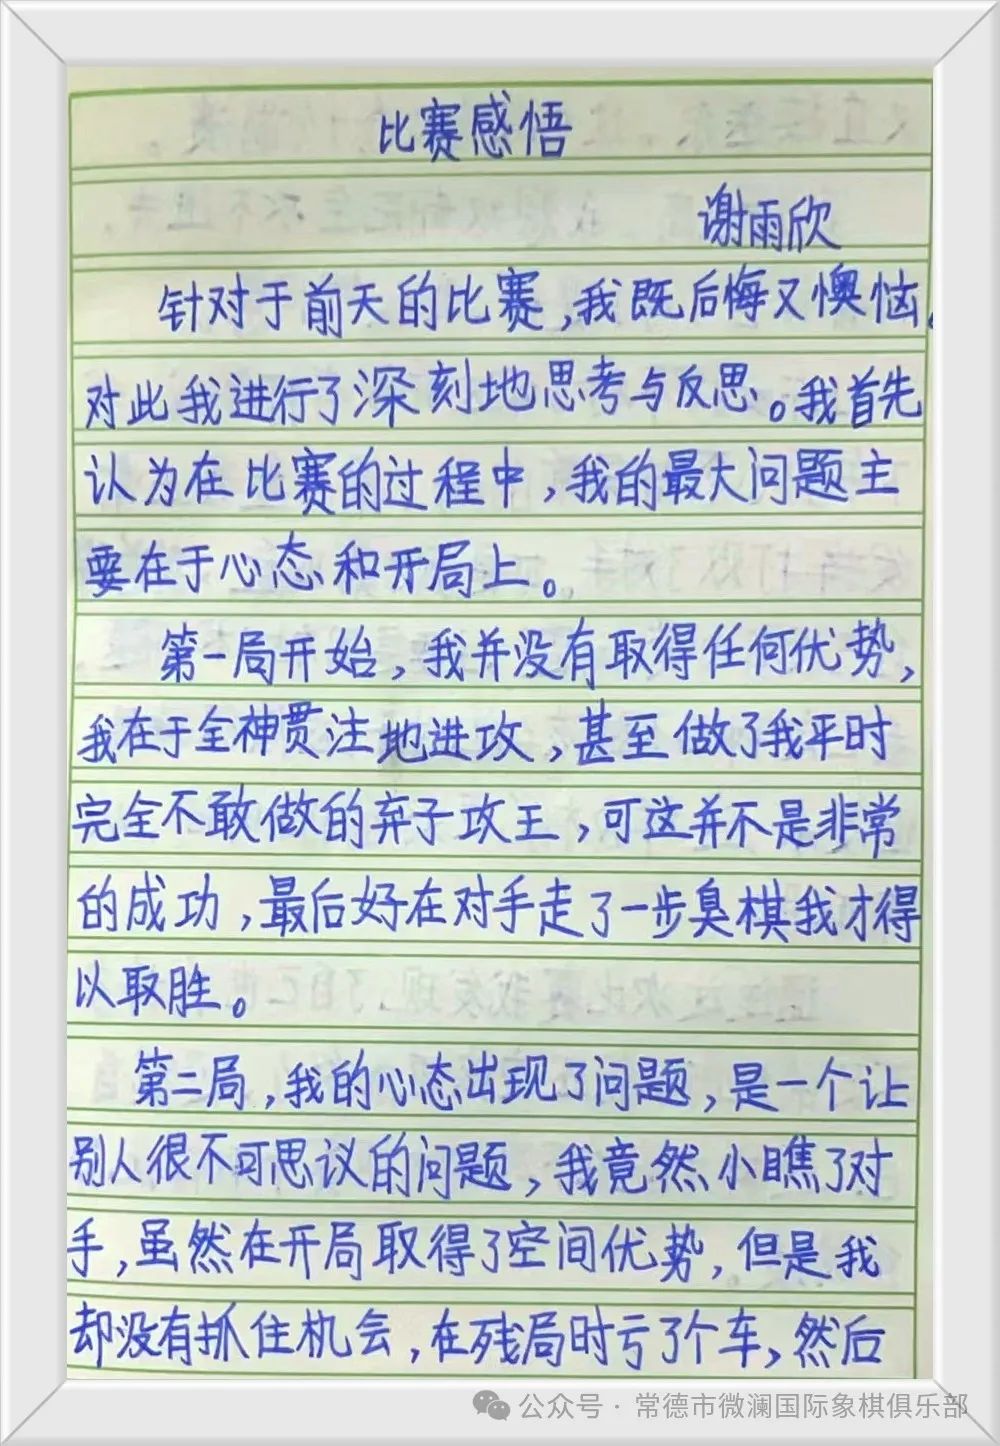 比赛感悟
谢雨欣
针对于前天的比赛,我既后悔又懊恼。
对此我进行了深刻地思考与反思。我首先
认为在比赛的过程中,我的最大问题主
要在于心态和开局上。
第一局开始,我并没有取得任何优势,
我在于全神贯注地进攻,甚至做了我平时
完全不敢做的弃子攻王,可这并不是非常
的成功,最后好在对手走了一步臭棋我才得
以取胜。
第二局,我的心态出现了问题,是一个让
别人很不可思议的问题,我竟然小瞧了对
手,虽然在开局取得了空间优势,但是我
却没有抓住机会,在残局时亏了个车,然后
公众号·常德市微澜国际象棋俱乐部